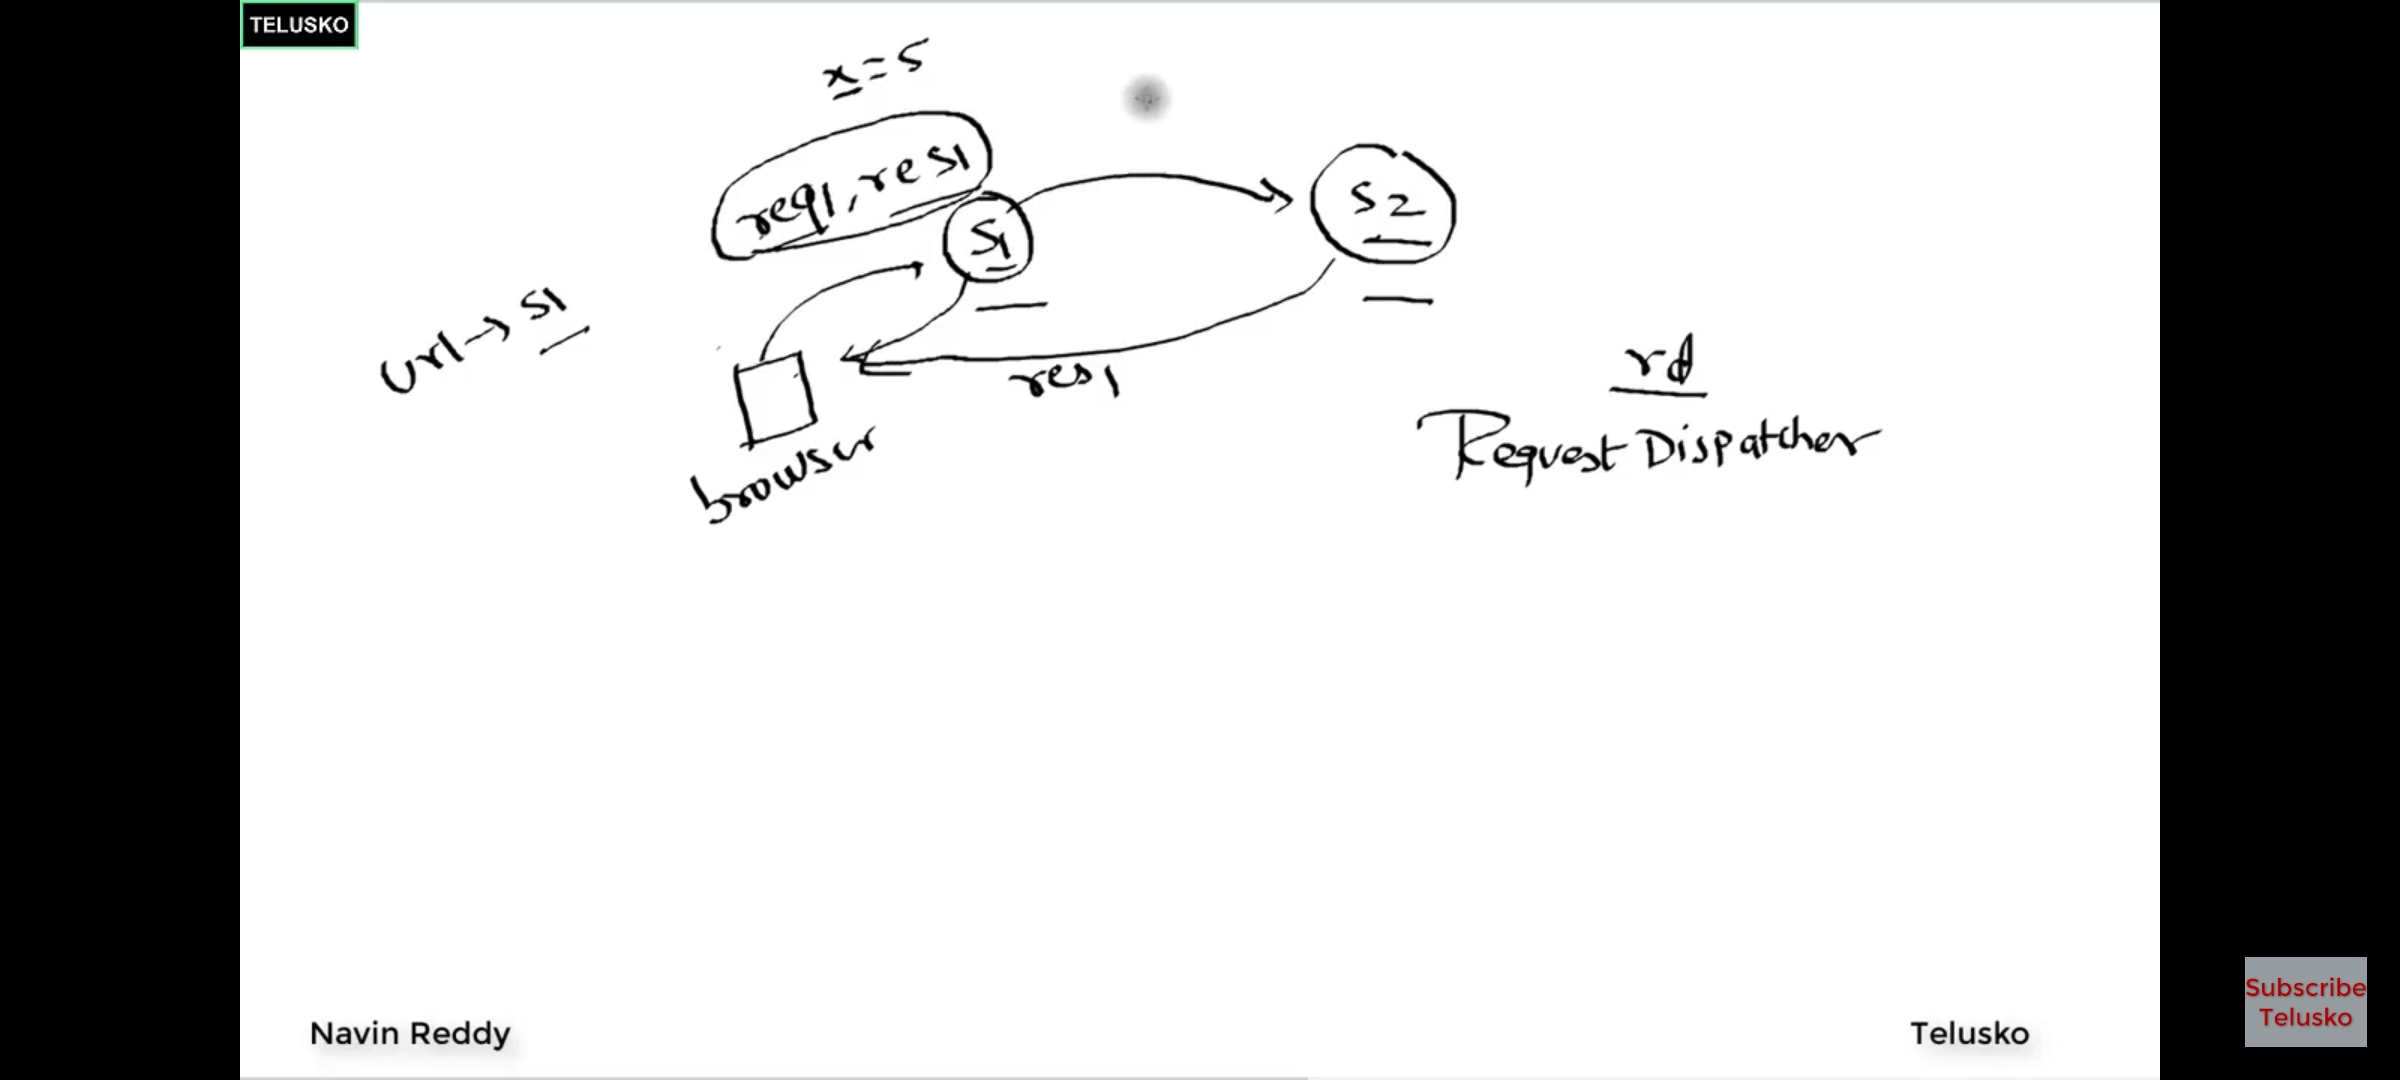 TELUSKO
x = 5
req1, res1
S1
S2
url → S1
res1
browser
rd
RequestDispatcher
Navin Reddy
Telusko
Subscribe
Telusko